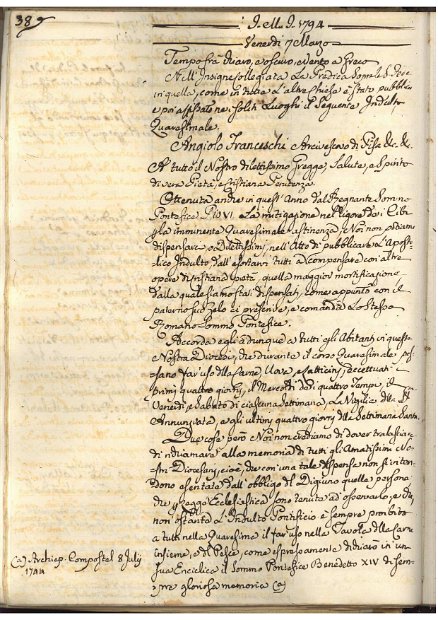 389
I. M. I. 1794
Venerdì 7 Marzo
Tempo frà chiaro, e oscuro, e vento a Greco
All'Insigne Collegiata La Predica Sopra le
in quella, come in tutte L'altre Chiese è Stato pubblic
e poi affissato ne' Soliti Luoghi il Seguente Indulto
Quaresimale
Angiolo Franceschi Arcivescovo di Pisa &c. &c.
A tutto il Nostro dilettissimo Gregge Salute, e Spirito
di vera Pietà, e Cristiana Penitenza
Ottenuta anche in quest'Anno dal Regnante Sommo
Pontefice Pio VI. La mitigazione nel rigore dei Cibi
p la imminente Quaresimale astinenza, Noi non
dispensare, o Dilettissimi, nell'Atto di pubblicare L'Apost
lico Indulto dall'esortarvi tutti a compensare con altre
opere di Cristiana pietà, quella maggior mortificazione
dalla quale siamo stati dispensati, come appunto con il
paterno suo zelo ci prescrive, e comanda Lo Stesso
Romano Sommo Pontefice
Accorda egli adunque a tutti gli Abitanti in questa
Nostra Diocesi, che durante il corso Quaresimale pos
sano far uso della Carne, Uova, e Latticini, eccettuati i
primi quattro giorni, il Mercoledì dei quattro Tempi, il
Venerdì, e Sabato di ciascuna Settimana, La Vigilia della SS.
Annunziata, e gli ultimi quattro giorni della Settimana Santa.
Due cose però Noi non crediamo di dover tralasciare
di richiamare alla memoria di tutti gli Amatissimi No
stri Diocesani, cioè, che con una tale dispensa non s'inten
dono esentate dall'obbligo del Digiuno quelle persone
che p Legge Ecclesiastica Sono tenute ad osservarlo, e che
non ostante L'Indulto Pontificio è Sempre proibito
a tutti nella Quaresima il far uso nella Tavola della Carne
insieme, e di Pesce, come espressamente dichiarò in un
sua Enciclica il Sommo Pontefice Benedetto XIV di Sem
pre gloriosa memoria (a)
(a) Archiep. Compostel 8 July
1744